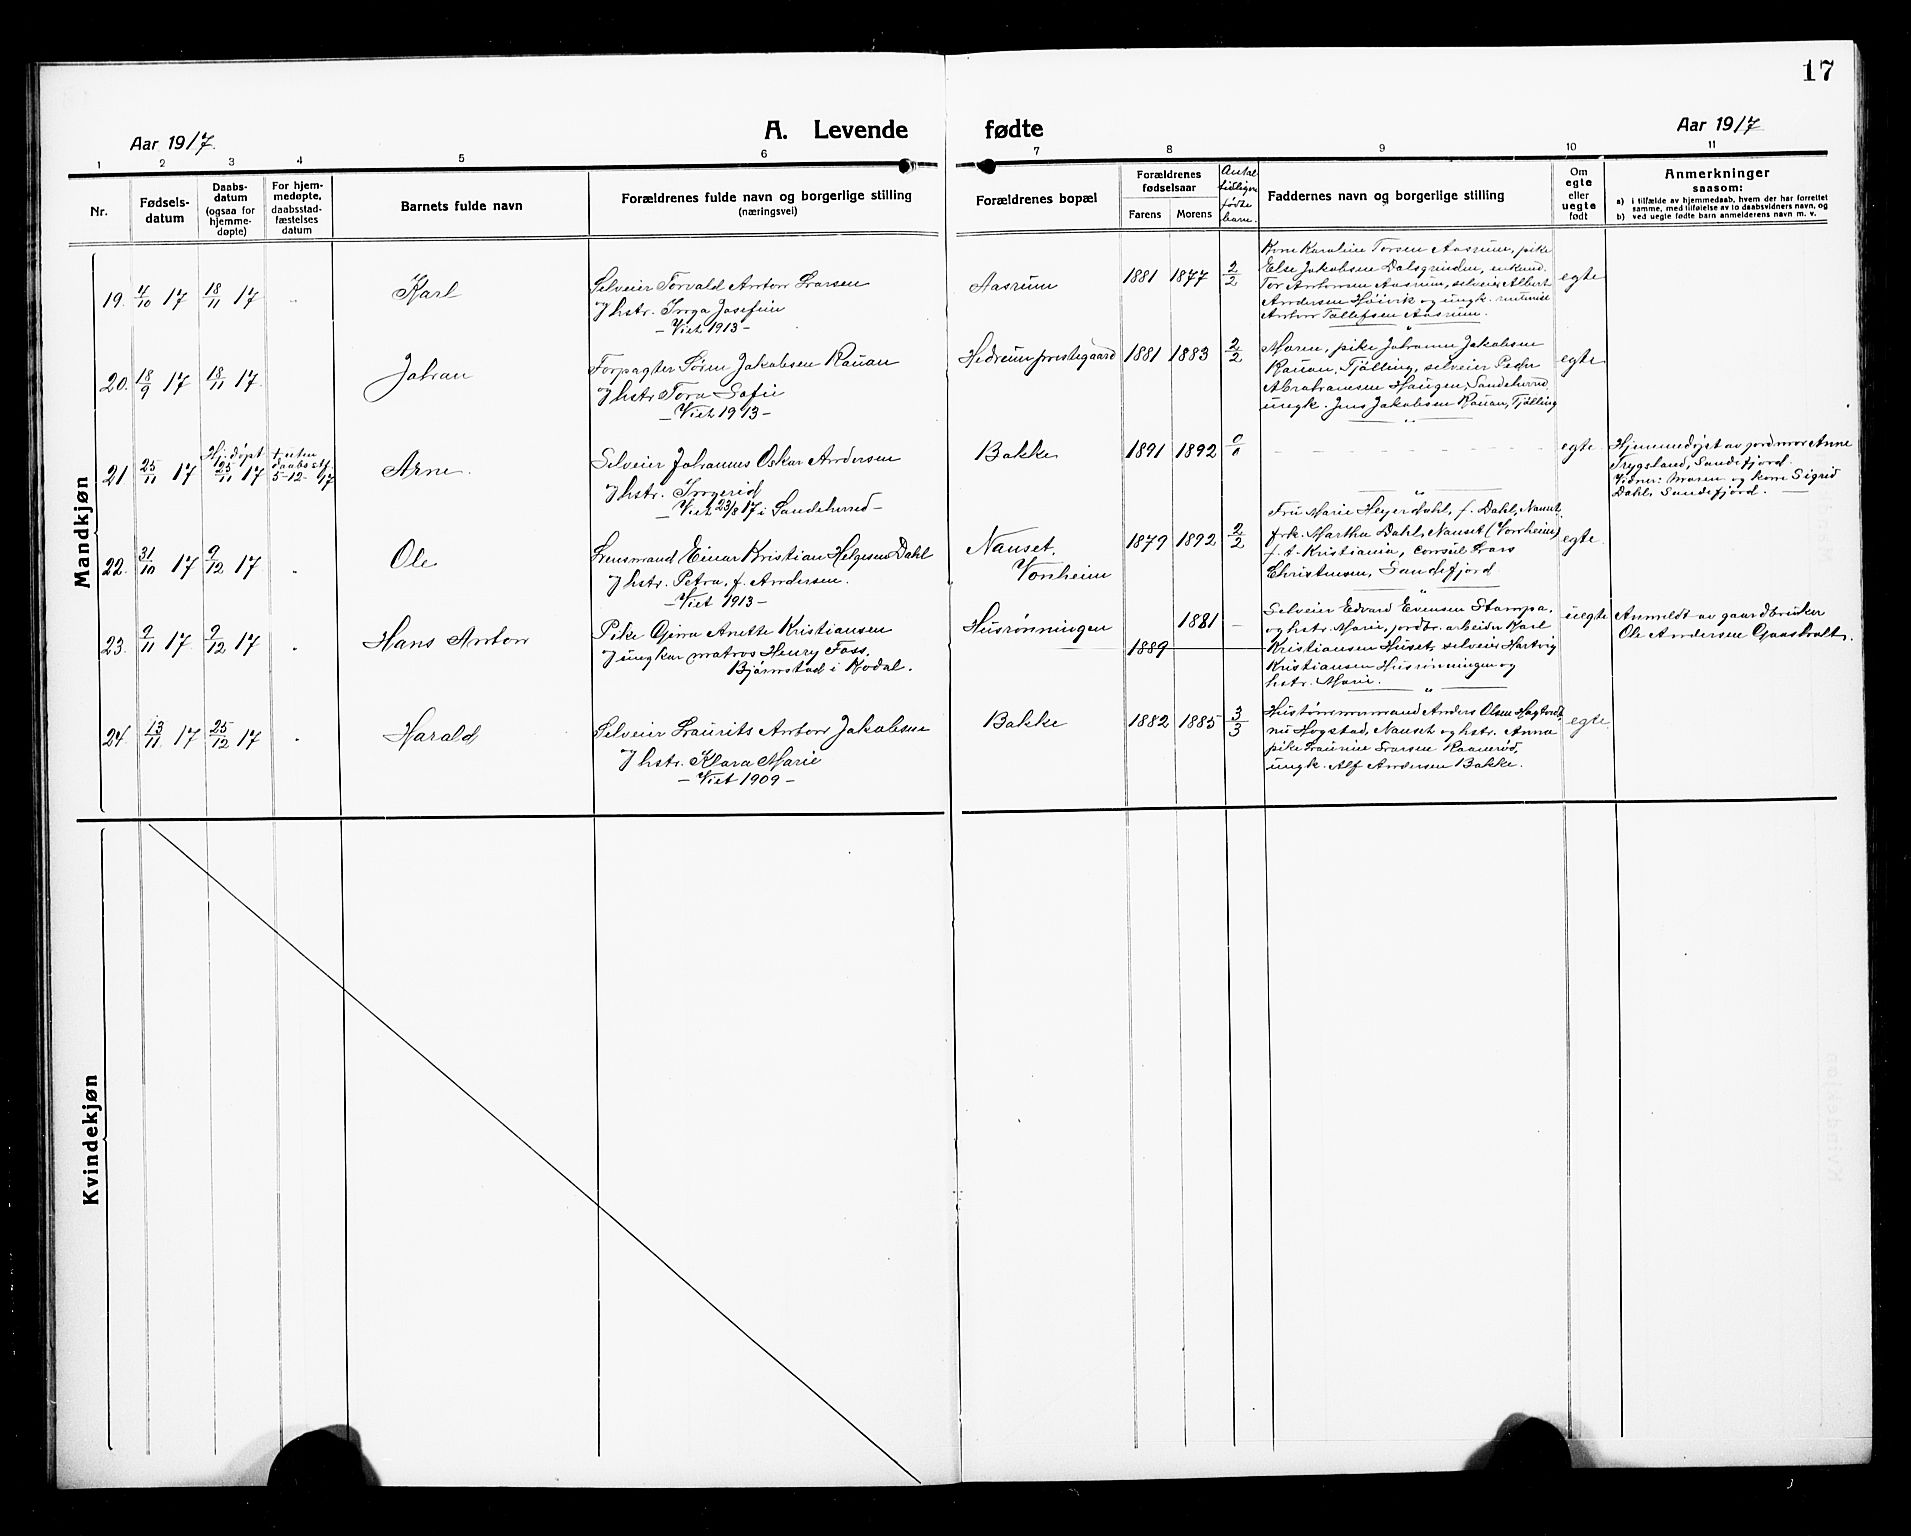 17
Aar 1917.
A. Levende fødte
Aar 1917
1 2 3 4 5 6 7 8 9 10 11
Nr.
Fødsels-
datum
Daabs-
datum
(ogsaa for
hjemme-
døpte)
For hjem-
medøpte,
daabsstad-
fæstelses
datum
Barnets fulde navn
Forældrenes fulde navn og borgerlige stilling
(næringsvei)
Forældrenes bopæl
Forældrenes
fødselsaar
Farens Morens
Antal
tidligere
fødte
barn.
Faddernes navn og borgerlige stilling
Om
egte
eller
uegte
født
Anmerkninger
saasom:
a) i tilfælde av hjemmedaab, hvem der har forrettet
samme, med tilføielse av to daabsvidners navn, og
b) ved uegte fødte barn anmelderens navn m. v.
Mandkjøn
19. 4/10 17 18/11 17 Karl
Selveier Torvald Anton Larsen
og hstr. Inga Josefine
— Viet 1913 —
Aasrum 1881 1877 2/2
Kone Karoline Torsen Aasrum, pike
Else Jakobsen Dalsgrinden, enkem.
Tor Antonsen Aasrum, selveier Albert
Andersen Høivik og ungk.
Anton Tollefsen Aasrum.
egte
20. 18/9 17 18/11 17 Johan
Forpagter Søren Jakobsen Rauan
og hstr. Tora Sofie
— Viet 1913 —
Hedrum prestegaard 1881 1883 2/2
Moren, pike Johanne Jakobsen
Rauan, Tjølling, selveier Peder
Abrahamsen Haugen, Sandeherred,
ungk. Jens Jakobsen Rauan, Tjølling
egte
21 25/11 17 Hj. døpt 25/11 17
† uten
daabsstf.
5-12-17
Arne.
Selveier Johannes Oskar Andersen
og hstr. Ingerid
— Viet 23/8 17 i Sandeherred —
Bakke 1891 1892 0/0
egte
Hjemmedøpt av jordmor Anne
Trygsland, Sandefjord.
Vidner: Moren og kone Sigrid
Dahl, Sandefjord. —
22. 31/10 17 9/12 17 Ole
Lensmand Einar Kristian Helgesen Dahl
og hstr. Petra, f. Andersen.
— Viet 1913 —
Nauset,
Vonheim
1879 1892 2/2
Fru Marie Heyerdahl, f. Dahl, Nauset,
frk. Martha Dahl, Nauset (Vonheim)
f. t. Kristiania, consul Lars
Christensen, Sandefjord.
egte.
23. 9/11 17 9/12 17 Hans Anton
Pike Gjina Anette Kristiansen
og ungkar matros Henry Foss,
Bjørnstad i Kodal.
Husrønningen 1881 —
1889
Selveier Edvard Evensen Stampa,
og hstr. Marie, jordbr. arbeider Karl
Kristiansen Huset, selveier Hartvig
Kristiansen Husrønningen og
hstr. Marie.
uegte
Anmeldt av gaardbruker
Ole Andersen Gaasholt.
24. 13/11 17 25/12 17 Harald
Selveier Laurits Anton Jakobsen
og hstr. Klara Marie
— Viet 1909 —
Bakke 1882 1885 3/3
Anders Olsen
Høgstad, Nauset og hstr. Anna
pike Laurine Larsen
ungk. Alf Andersen Bakke.
egte.
Kvindekjøn